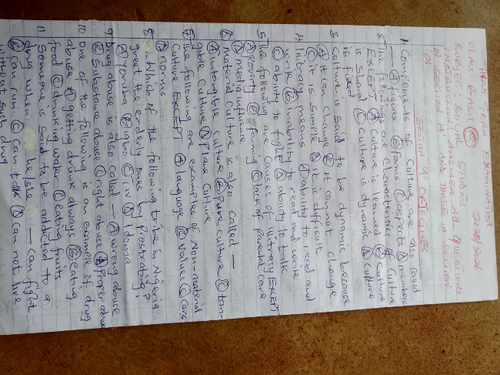 THIRD TERM EXAMINATION
CLASS: BASIC 2025/2026
SUBJECT: SOCIAL STUDIES
INSTRUCTION: ANSWER ALL QUESTIONS
IN SECTION A AND THREE IN SECTION
SECTION A OBJECTIVES
1 Components of culture are also called
A regions B forms C aspects D members
2 The following are characteristics of culture
EXCEPT A culture is learned B culture
is shared C culture is dynamic D culture
is fixed
3 culture is said to be dynamic because
A it can change B it cannot change
C it is simple D it is difficult
4 literacy means A ability to read and
write B inability to read and write
C ability to fight D ability to talk
5 The following are causes of illiteracy EXCEPT
A poverty B farming C lack of parental care
D
6 Material culture is also called —
A intangible culture B pure culture C tan-
gible culture D plane culture
7 The following are examples of Non-material
culture EXCEPT A language B values C cars
D norms
8 Which of the following tribe in Nigeria
greet the elderly ones by prostrating?
A Yoruba B Igbo C D Idoma
9 Drug abuse is also called A wrong abuse
B Substance abuse C right abuse D proper abuse
10 One of the following is an example of drug
abuse A getting drunk always B eating
food C drinking water D eating fruits
11 Someone is said to be addicted to a
drug when he/she — A can fight
B can run C can talk D can not live
without such drug